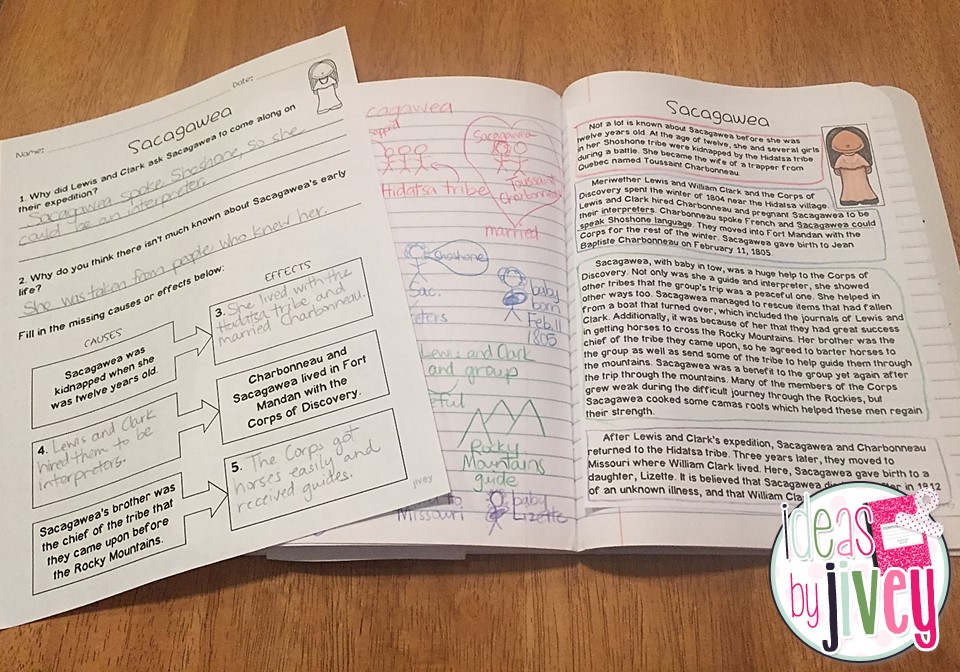 Date:
Name:
Sacagawea
1. Why did Lewis and Clark ask Sacagawea to come along on
their expedition?
Sacagawea spoke Shoshone, so she
could be an interpreter.
2. Why do you think there isn't much known about Sacagawea's early
life?
She was taken from people who knew her.
Fill in the missing causes or effects below:
CAUSES
EFFECTS
Sacagawea was
kidnapped when she
was twelve years old.
3. She lived with the
Hidatsa tribe and
married Charbonneau.
4. Lewis and Clark
hired them to be
interpreters.
Charbonneau and
Sacagawea lived in Fort
Mandan with the
Corps of Discovery.
Sacagawea's brother was
the chief of the tribe that
they came upon before
the Rocky Mountains.
5. The Corps got
horses easily and
received guides.
jivey
cagawea
Hidatsa tribe
Sacagawea
Toussaint
Charbonneau
married
Shoshone
Sac.
baby
born
Feb. 11
1805
Lewis and Clark
and group
Rocky
Mountains
guide
Missouri
baby
Lizette
Sacagawea
Not a lot is known about Sacagawea before she was
twelve years old. At the age of twelve, she and several girls
in her Shoshone tribe were kidnapped by the Hidatsa tribe
during a battle. She became the wife of a trapper from
Quebec named Toussaint Charbonneau.
Meriwether Lewis and William Clark and the Corps of
Discovery spent the winter of 1804 near the Hidatsa village.
Lewis and Clark hired Charbonneau and pregnant Sacagawea to be
their interpreters. Charbonneau spoke French and Sacagawea could
speak Shoshone language. They moved into Fort Mandan with the
Corps for the rest of the winter. Sacagawea gave birth to Jean
Baptiste Charbonneau on February 11, 1805.
Sacagawea, with baby in tow, was a huge help to the Corps of
Discovery. Not only was she a guide and interpreter, she showed
other tribes that the group's trip was a peaceful one. She helped in
other ways too. Sacagawea managed to rescue items that had fallen
from a boat that turned over, which included the journals of Lewis and
Clark. Additionally, it was because of her that they had great success
in getting horses to cross the Rocky Mountains. Her brother was the
chief of the tribe they came upon, so he agreed to barter horses to
the group as well as send some of the tribe to help guide them through
the mountains. Sacagawea was a benefit to the group yet again after
the trip through the mountains. Many of the members of the Corps
grew weak during the difficult journey through the Rockies, but
Sacagawea cooked some camas roots which helped these men regain
their strength.
After Lewis and Clark's expedition, Sacagawea and Charbonneau
returned to the Hidatsa tribe. Three years later, they moved to
Missouri where William Clark lived. Here, Sacagawea gave birth to a
daughter, Lizette. It is believed that Sacagawea in 1812
of an unknown illness, and that William
ideas
by jivey